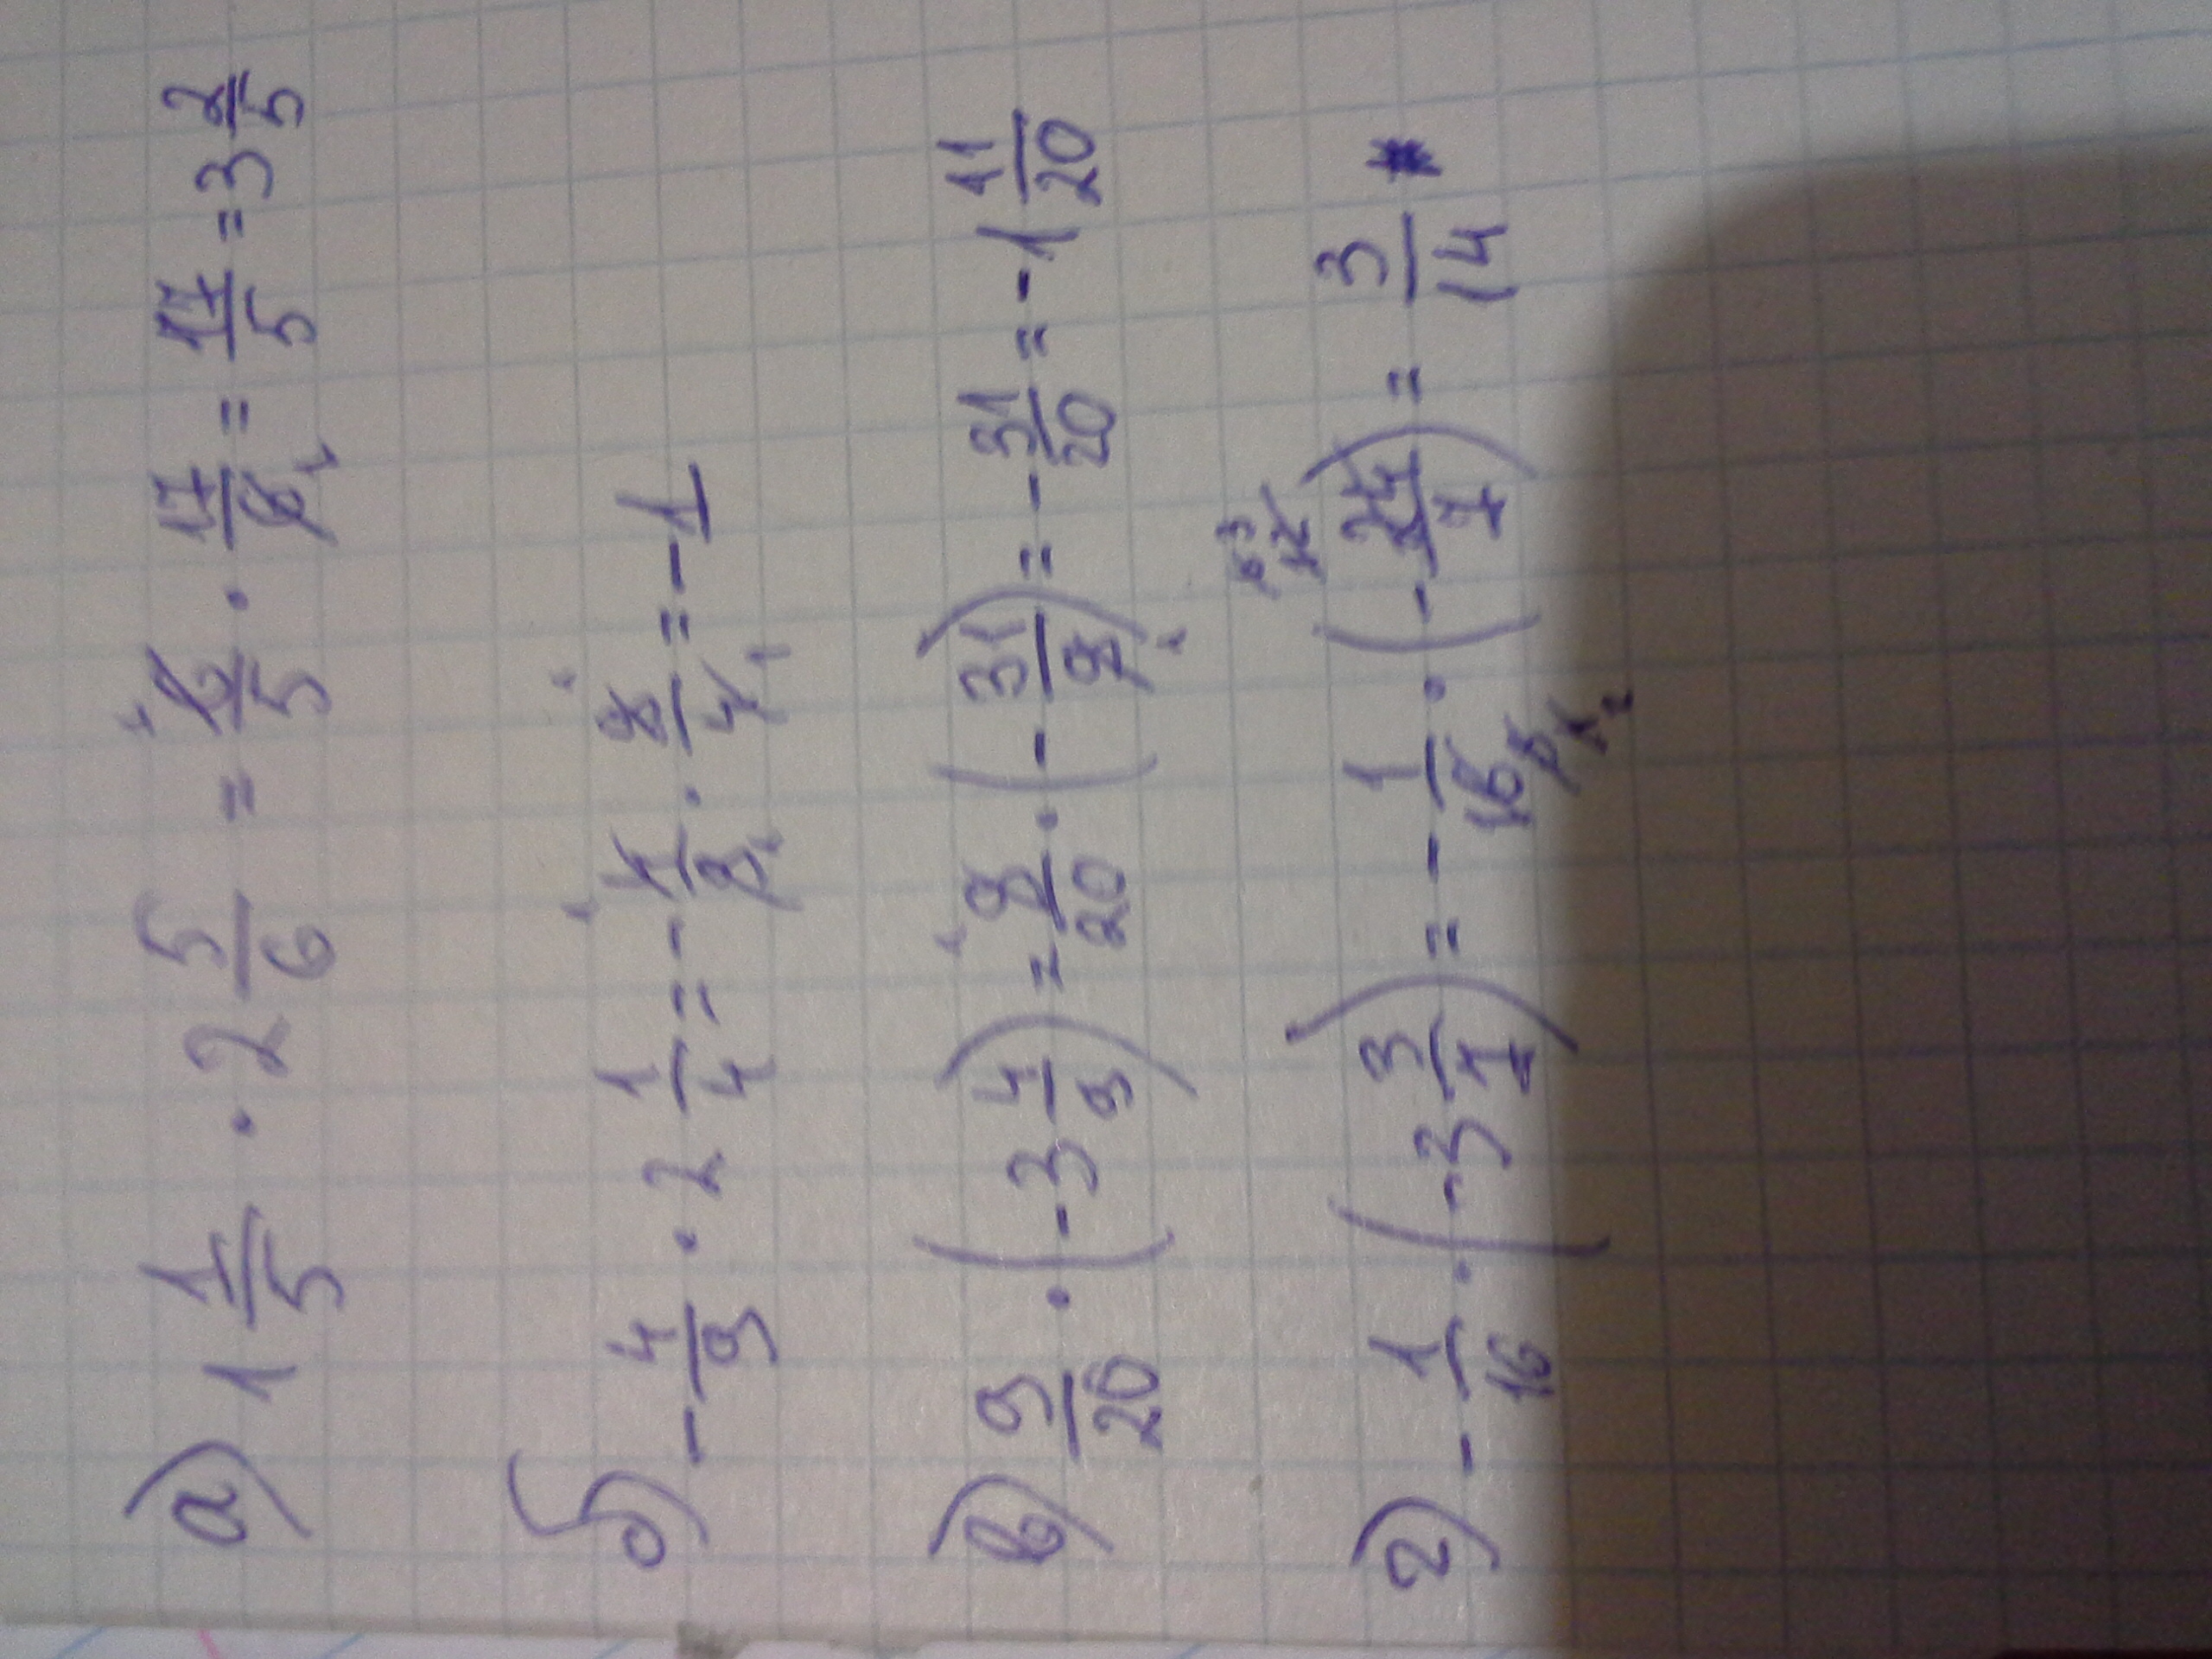 а) 1 1/5 · 2 5/6 = 6/5 · 17/6 = 17/5 = 3 2/5
б) - 4/9 · 2 1/4 = - 4/9 · 9/4 = - 1
в) 9/20 · (- 3 4/9) = 9/20 · (- 31/9) = - 31/20 = - 1 11/20
г) - 1/16 · (- 3 3/7) = - 1/16 · (- 24/7) = 3/14